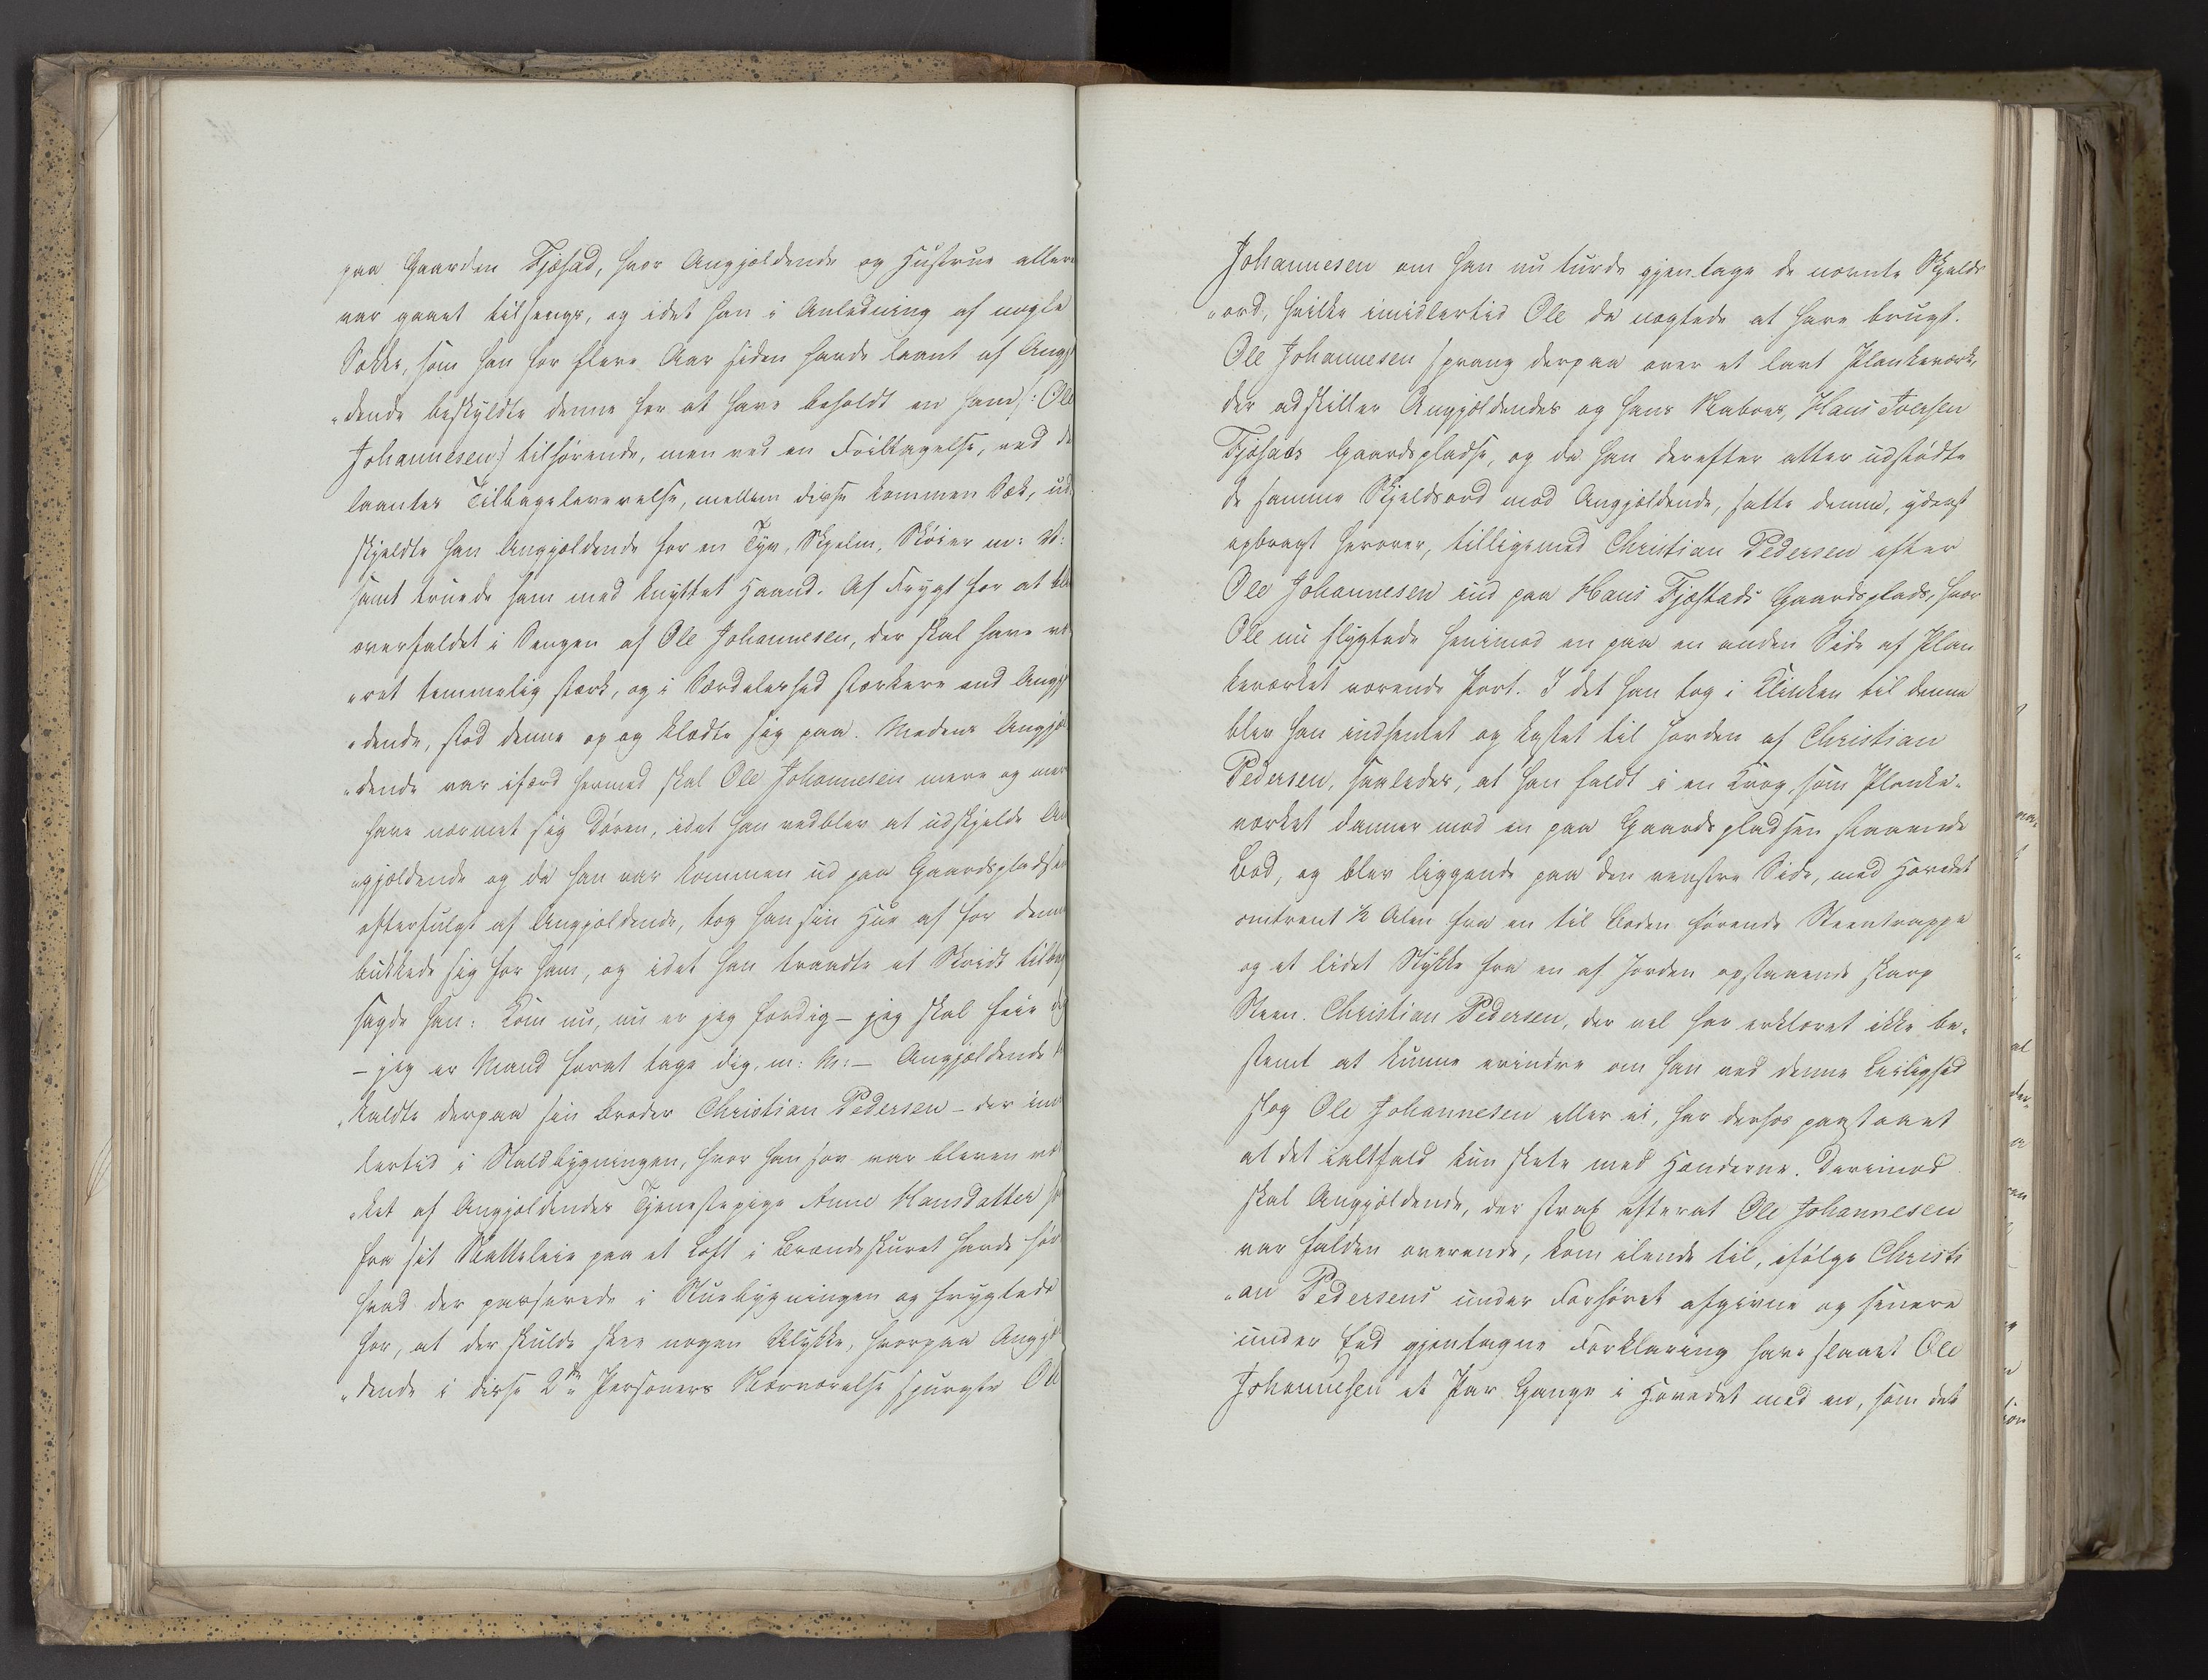 paa Gaarden Fjøsad, hvor Angjældende og Hustrue aller
var gaaet tilsengs, og idet han i Anledning af nogle
Sække, som han for flere Aar siden havde laant af Angj
„dende beskyldte denne for at have beholdt en ham /: Ole
Johannesen :/ tilhørende, men ved en Feiltagelse, ved de
laantes Tilbageleverelse, mellem disse kommen Sæk, ud
skjeldte han Angjældende for en Tyv, Skjelm, Skøier m: V:
samt truede ham med knyttet Haand. Af Frygt for at bli
overfaldet i Sengen af Ole Johannesen, der skal have væ
„ret temmelig stærk, og i Særdeleshed stærkere end Angj
„dende, stod denne op og klædte sig paa. Medens Angjæl
„dende var ifærd hermed skal Ole Johannesen mere og mere
have nærmet sig Døren, idet han vedblev at udskjelde An
„gjældende og da han var kommen ud paa Gaardspladsen
efterfulgt af Angjældende, tog han sin Hue af for denne
bukkede sig for ham, og idet han traadte et Skridt tilbag
sagde han: Kom nu, nu er jeg færdig – jeg skal feie dig
– jeg er Mand forat tage dig, m: V: – Angjældende
kaldte derpaa sin Broder Christian Pedersen – der imid
lertid i Staldbygningen, hvor han sov var bleven væk
„ket af Angjældendes Tjenestepige Anne Hansdatter so
fra sit Natteleie paa et Loft i Brændeskuret havde hør
hvad der passerede i Stuebygningen og frygtede
for, at der skulde skee nogen Ulykke, hvorpaa Angjæl
„dende i disse 2de Personers Nærværelse spurgte Ole
Johannesen om han nu turde gjentage de nævnte Skjelds
„ord, hvilke imidlertid Ole da nægtede at have brugt.
Ole Johannesen sprang derpaa over et lavt Plankeværk,
der adskiller Angjældendes og hans Naboes, Hans Iversen
Fjøsads Gaardspladse, og da han derefter atter udstødte
de samme Skjeldsord mod Angjældende, satte denne, yderst
opbragt herover, tilligemed Christian Pedersen efter
Ole Johannesen ind paa Hans Fjøstads Gaardsplads, hvor
Ole nu flygtede henimod en paa en anden Side af Plan
keværket værende Port. I det han tog i Klinken til denne
blev han indhentet og kastet til Jorden af Christian
Pedersen, saaledes, at han faldt i en Krog, som Planke-
værket danner mod en paa Gaardspladsen staaende
Bod, og blev liggende paa den venstre Side, med Hovedet
omtrent ½ Alen fra en til Boden førende Steentrappe
og et lidet Stykke fra en af Jorden opstaaende skarp
Steen. Christian Pedersen, der vel har erklæret ikke be-
stemt at kunne erindre om han ved denne Leilighed
slog Ole Johannesen eller ei, har derhos paastaaet
at det ialtfald kun skete med Hænderne. Derimod
skal Angjældende, der strax efterat Ole Johannesen
var falden overende, kom ilende til, ifølge Christi
„an Pedersens under Forhøret afgivne og senere
under Eed gjentagne Forklaring have slaaet Ole
Johannesen et Par Gange i Hovedet med en, som det